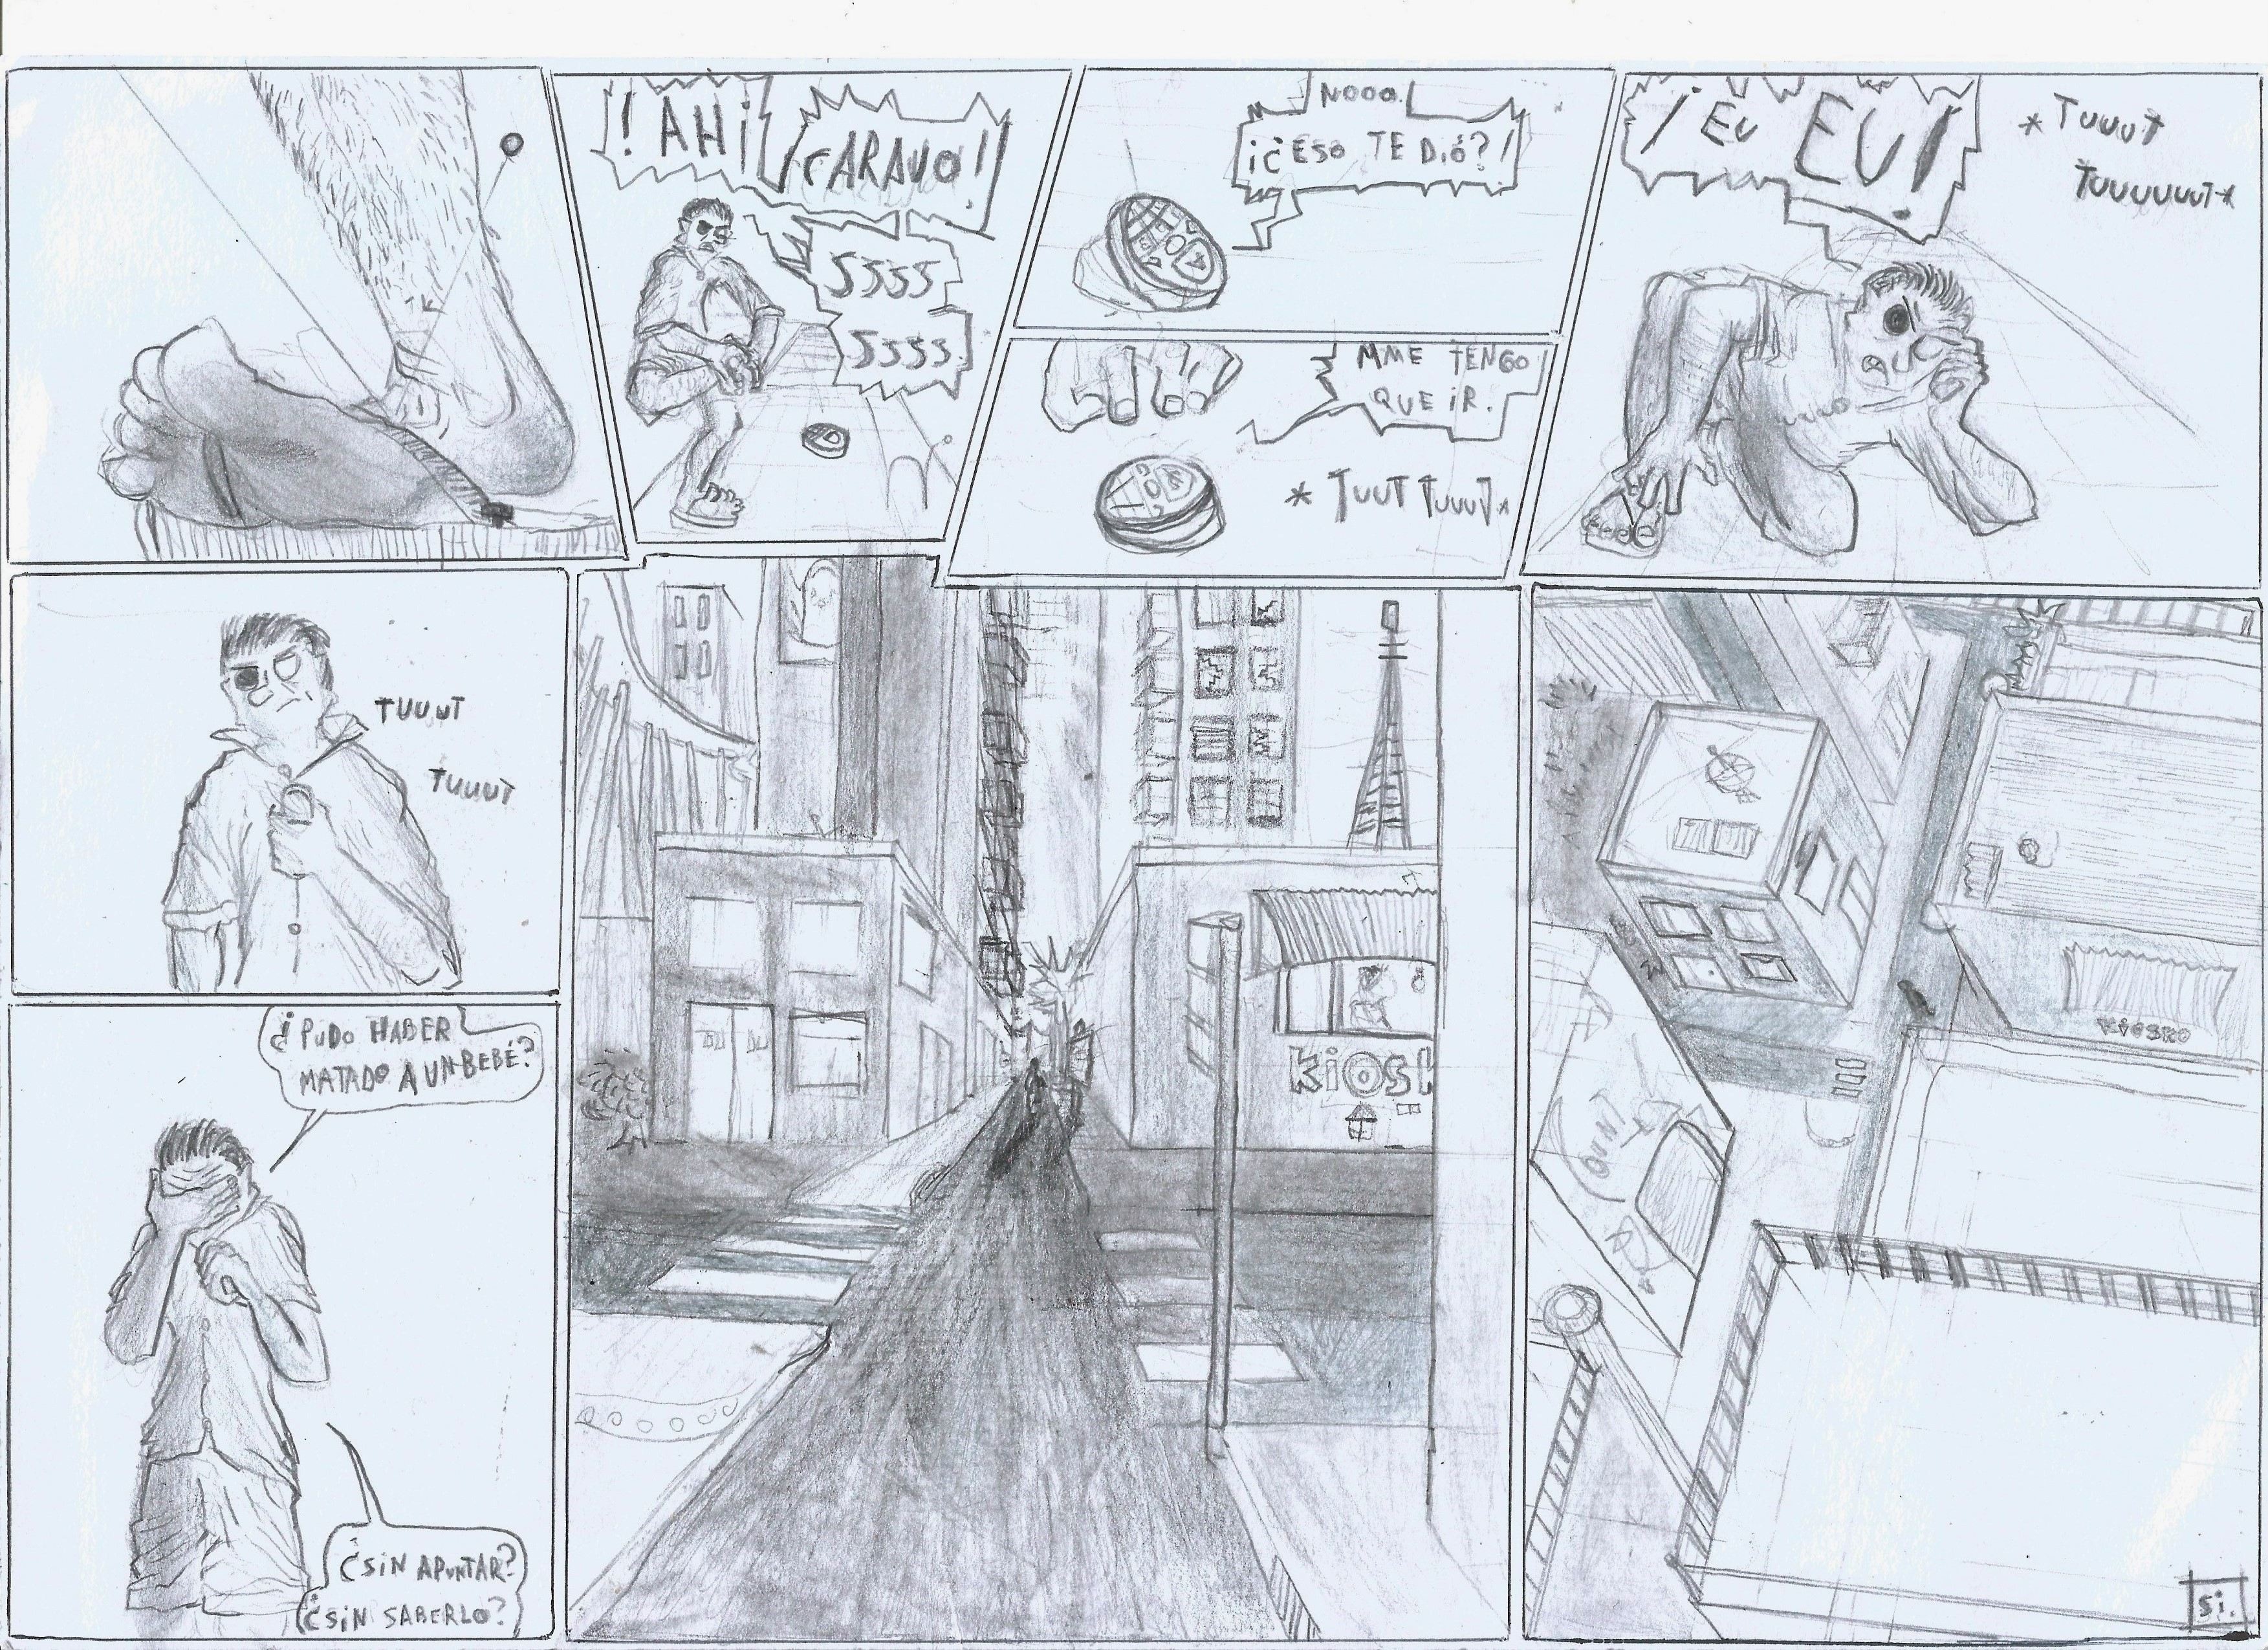 ¡! AH¡
¡CARAVO!
SSSS
SSSS
NOOO.
¡¿ESO TE DIÓ?!
MME TENGO
QUE iR.
* TUUT TUUUT*
¡EU EU!
* TUUUT
TUUUUUUT*
TUUUT
TUUUT
¿PUDO HABER
MATADO A UN BEBÉ?
¿SiN APUNTAR?
¿SiN SABERLO?
KiOSK
KiOSKO
Si.